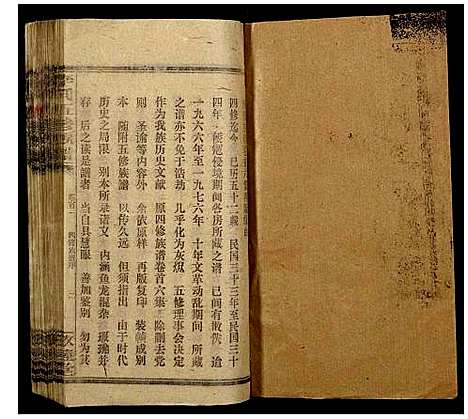 四修迄今 已历五十二载 民国三十三年至民国三十
四年 倭寇侵境期间各房所藏之谱 已间有散佚 迨
一九六六年至一九七六年 十年文革动乱期间 所藏
之谱亦不免于浩劫 几乎化为灰烬 五修理事会决定
作为我族历史文献 原四修族谱卷首六集 除删去党
则 圣谕等内容外 余依原样 再版复印 装帧成别
本 随附五修族谱 以传久远 但须指出 由于时代
之局限 别本所录诸文 内涵鱼龙混杂 瑕瑜并
存 后之读是谱者 当自具慧眼 善加鉴别 勿为其